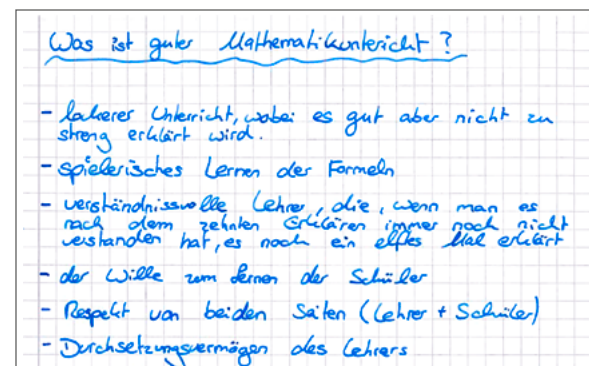 Was ist guter Mathematikunterricht?
- lockerer Unterricht, wobei es gut aber nicht zu
streng erklärt wird.
- spielerisches Lernen der Formeln
- verständnissvolle Lehrer, die, wenn man es
nach dem zehnten Erklären immer noch nicht
verstanden hat, es noch ein elftes Mal erklärt
- der Wille zum Lernen der Schüler
- Respekt von beiden Seiten (Lehrer + Schüler)
- Durchsetzungsvermögen des Lehrers